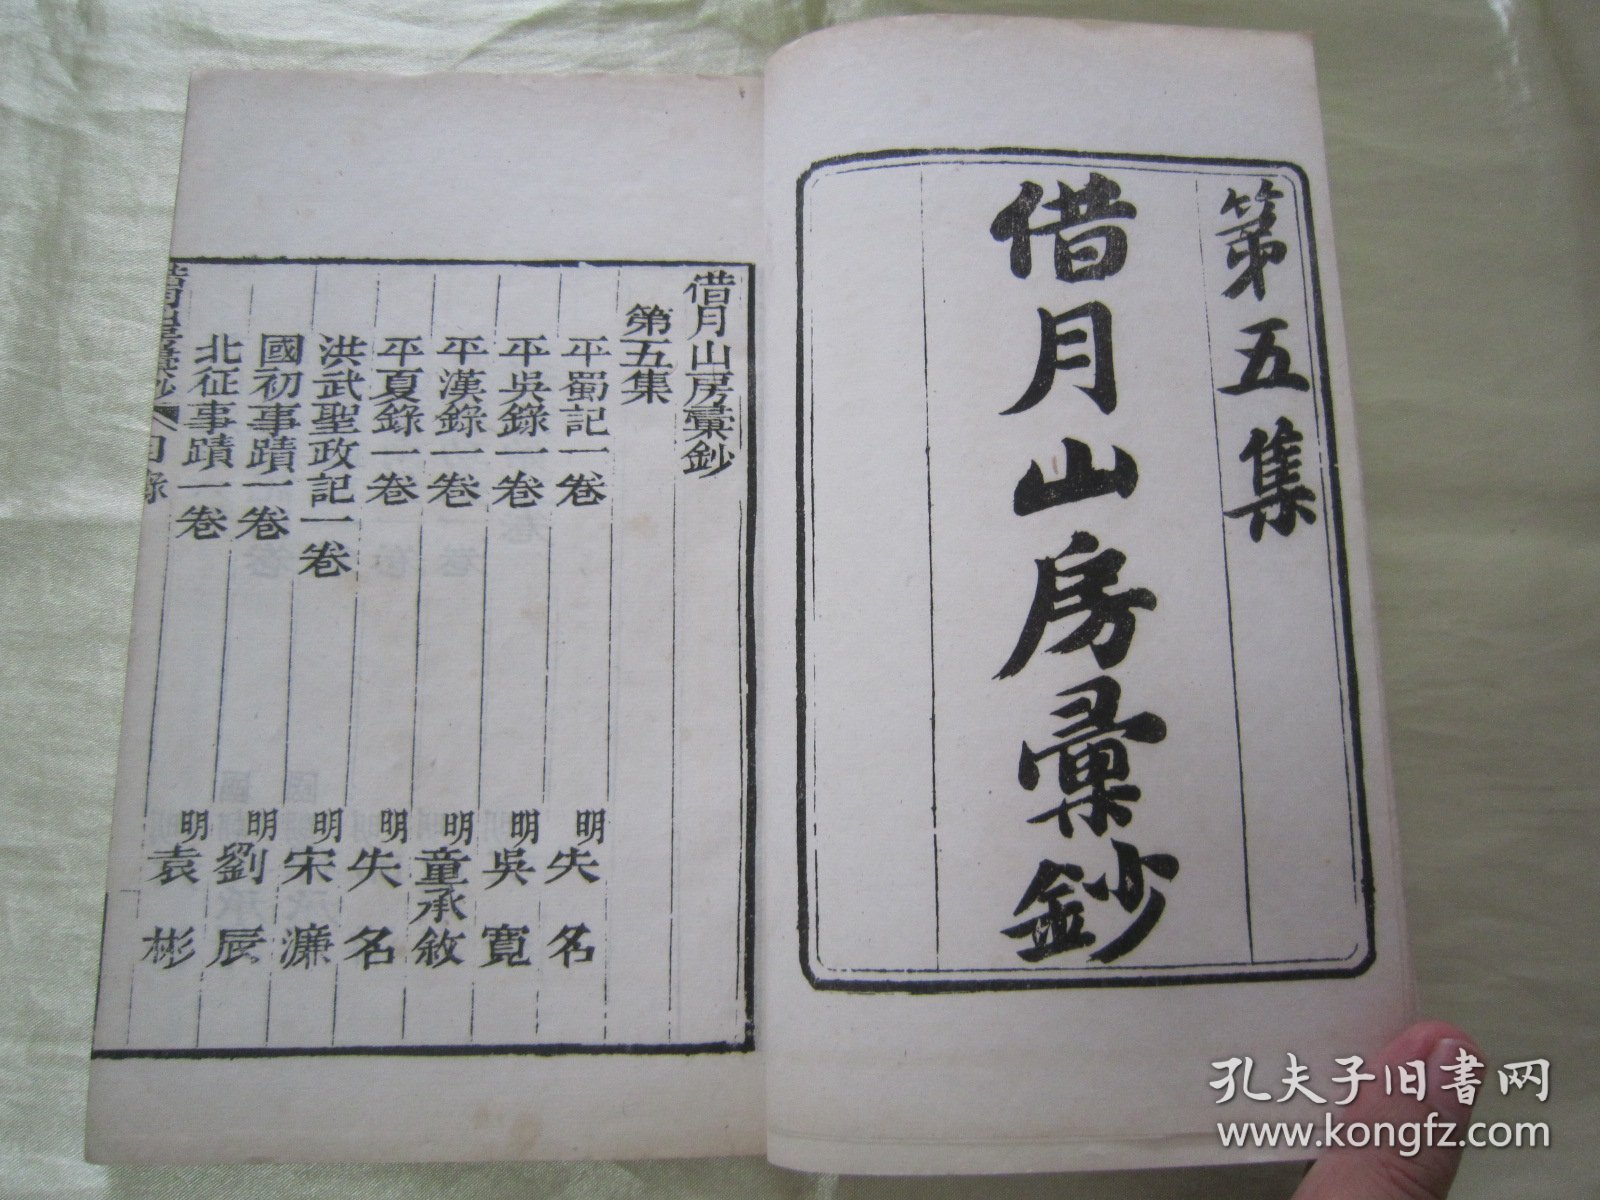 第五集
借月山房彙鈔
借月山房彙鈔
第五集
平蜀記一卷 明失名
平吳錄一卷 明吳寬
平漢錄一卷 明童承敘
平夏錄一卷 明失名
洪武聖政記一卷 明宋濂
國初事蹟一卷 明劉辰
北征事蹟一卷 明袁彬
目錄
孔夫子旧书网
www.kongfz.com